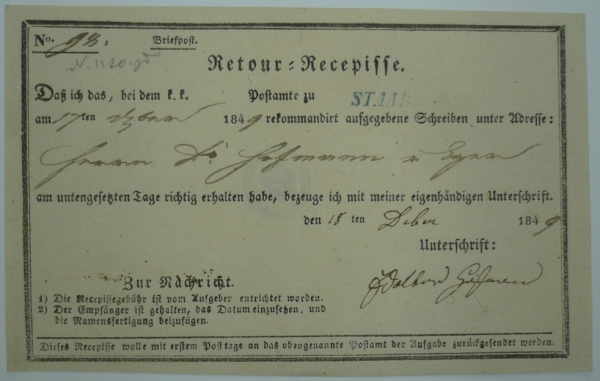 No. 98. Briefpost.
Retour=Recepisse.
Daß ich das, bei dem k. k. Postamte zu STAAB
am 17ten 1849 rekommandirt aufgegebene Schreiben unter Adresse:
Herrn Dr Hofmann Eger
am untengesetzten Tage richtig erhalten habe, bezeuge ich mit meiner eigenhändigen Unterschrift.
den 18 ten Dcber 1849
Unterschrift:
Zur Nachricht.
1) Die Recepissegebühr ist vom Aufgeber entrichtet worden.
2) Der Empfänger ist gehalten, das Datum einzusetzen, und
die Namensfertigung beizufügen.
Dieses Recepisse wolle mit erstem Posttage an das obengenannte Postamt der Aufgabe zurückgesendet werden.